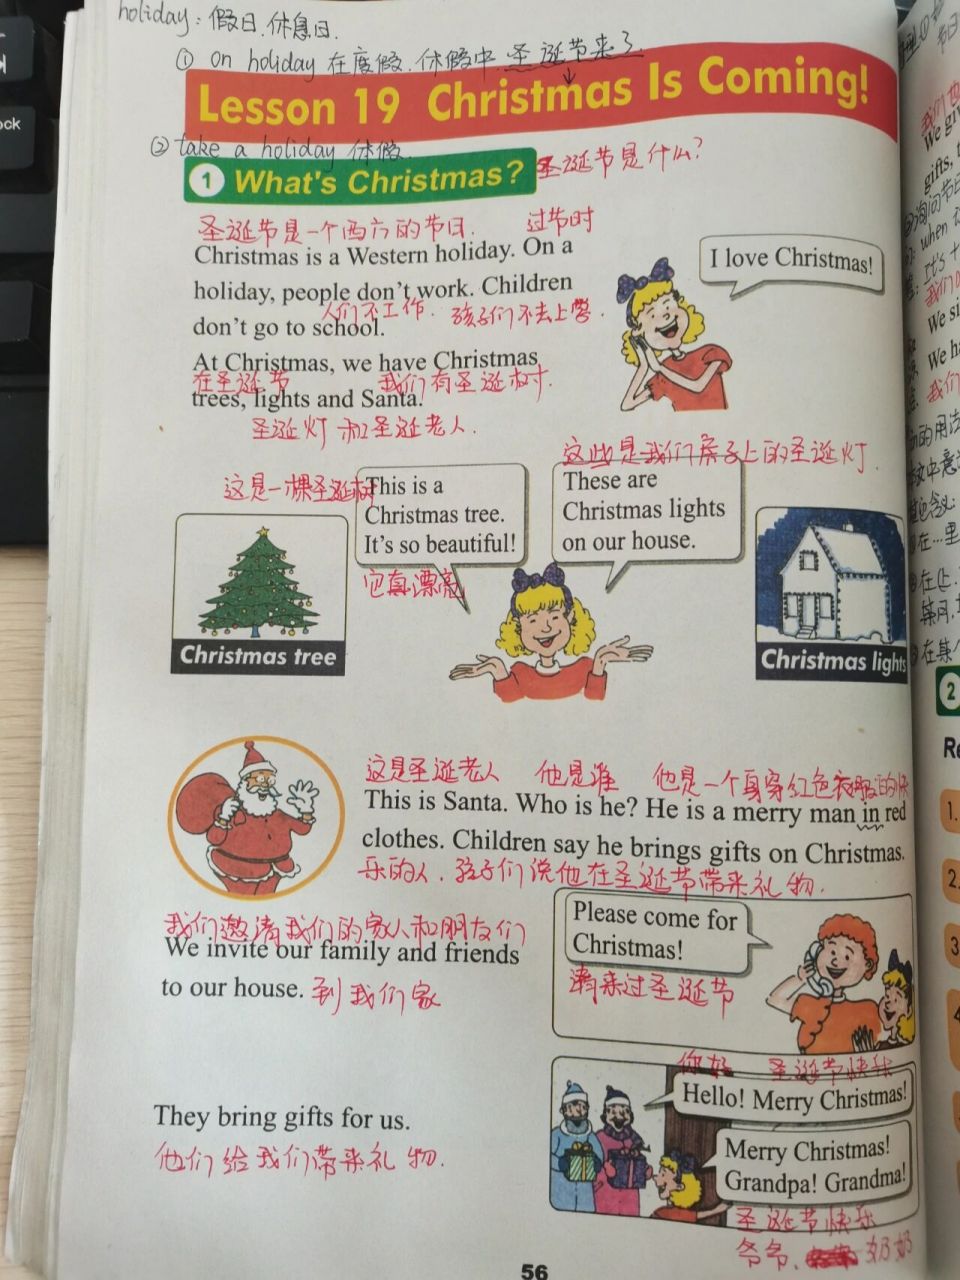 holiday: 假日.休息日.
① on holiday 在度假.休假中 圣诞节来了
Lesson 19 Christmas Is Coming!
② take a holiday 休假.
1 What's Christmas? 圣诞节是什么?
圣诞节是一个西方的节日. 过节时
Christmas is a Western holiday. On a
holiday, people don't work. Children
人们不工作. 孩子们不去上学.
don't go to school.
At Christmas, we have Christmas
在圣诞节 我们有圣诞树.
trees, lights and Santa.
圣诞灯 和圣诞老人.
I love Christmas!
这是一棵圣诞树
This is a
Christmas tree.
It's so beautiful!
它真漂亮
这些是我们房子上的圣诞灯.
These are
Christmas lights
on our house.
Christmas tree
Christmas lights
这是圣诞老人 他是谁 他是一个身穿红色衣服的快
This is Santa. Who is he? He is a merry man in red
clothes. Children say he brings gifts on Christmas.
乐的人. 孩子们说他在圣诞节带来礼物.
我们邀请我们的家人和朋友们
We invite our family and friends
to our house. 到我们家
Please come for
Christmas!
请来过圣诞节
They bring gifts for us.
他们给我们带来礼物.
你好 圣诞节快乐
Hello! Merry Christmas!
Merry Christmas!
Grandpa! Grandma!
圣诞节快乐
爷爷、奶奶
56
我们
We
gifts,
when
It's
我们
We si
We ha
我们
的用法
在...里
2
Re
1.
2.
3
4